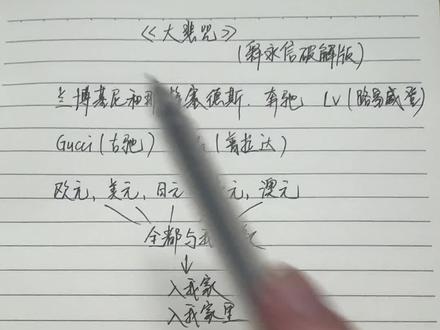 《大悲咒》
(释永信破解版)
兰博基尼和 塞德斯. 奔驰 LV(路易威登)
Gucci(古驰) (普拉达)
欧元, 美元, 日元 元, 澳元
全都与我
入我家
入我家里